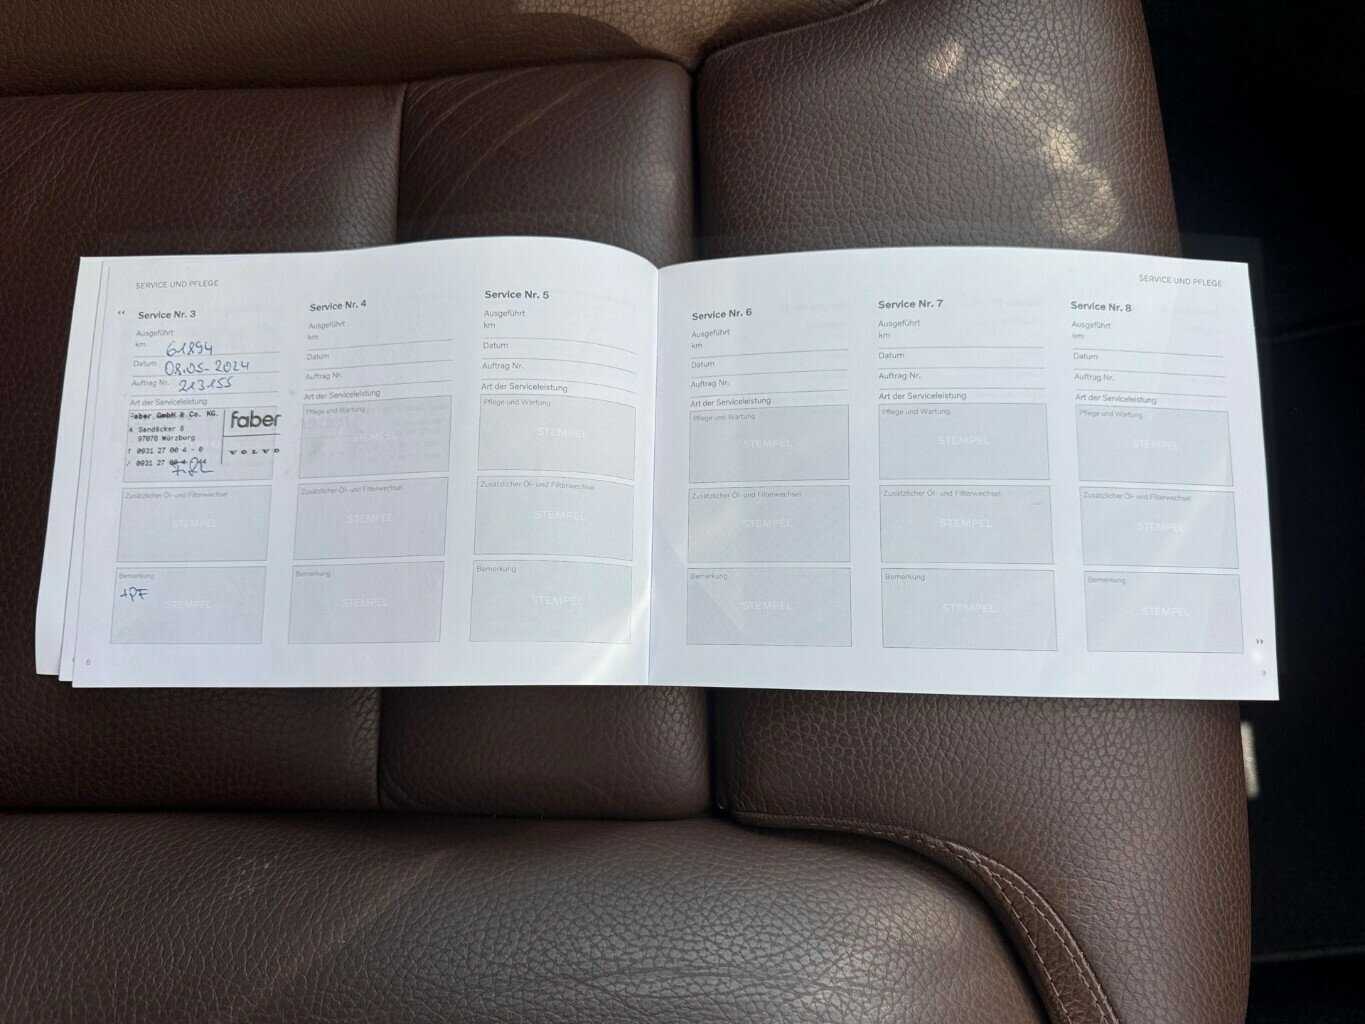 SERVICE UND PFLEGE
Service Nr. 3
Ausgeführt
km 61894
Datum 08.05-2024
Auftrag Nr. 213155
Art der Serviceleistung
Faber GmbH & Co. KG.
Sandäcker 8
97076 Würzburg
0931 27 00 4 - 0
0931 27
faber
VOLVO
Zusätzlicher Öl- und Filterwechsel
STEMPEL
Bemerkung
+PF
STEMPEL
6
Service Nr. 4
Ausgeführt
km
Datum
Auftrag Nr.
Art der Serviceleistung
Pflege und Wartung
STEMPEL
Zusätzlicher Öl- und Filterwechsel
STEMPEL
Bemerkung
STEMPEL
Service Nr. 5
Ausgeführt
km
Datum
Auftrag Nr.
Art der Serviceleistung
Pflege und Wartung
STEMPEL
Zusätzlicher Öl- und Filterwechsel
STEMPEL
Bemerkung
STEMPEL
SERVICE UND PFLEGE
Service Nr. 6
Ausgeführt
km
Datum
Auftrag Nr.
Art der Serviceleistung
Pflege und Wartung
STEMPEL
Zusätzlicher Öl- und Filterwechsel
STEMPEL
Bemerkung
STEMPEL
Service Nr. 7
Ausgeführt
km
Datum
Auftrag Nr.
Art der Serviceleistung
Pflege und Wartung
STEMPEL
Zusätzlicher Öl- und Filterwechsel
STEMPEL
Bemerkung
STEMPEL
Service Nr. 8
Ausgeführt
km
Datum
Auftrag Nr.
Art der Serviceleistung
Pflege und Wartung
STEMPEL
Zusätzlicher Öl- und Filterwechsel
STEMPEL
Bemerkung
STEMPEL